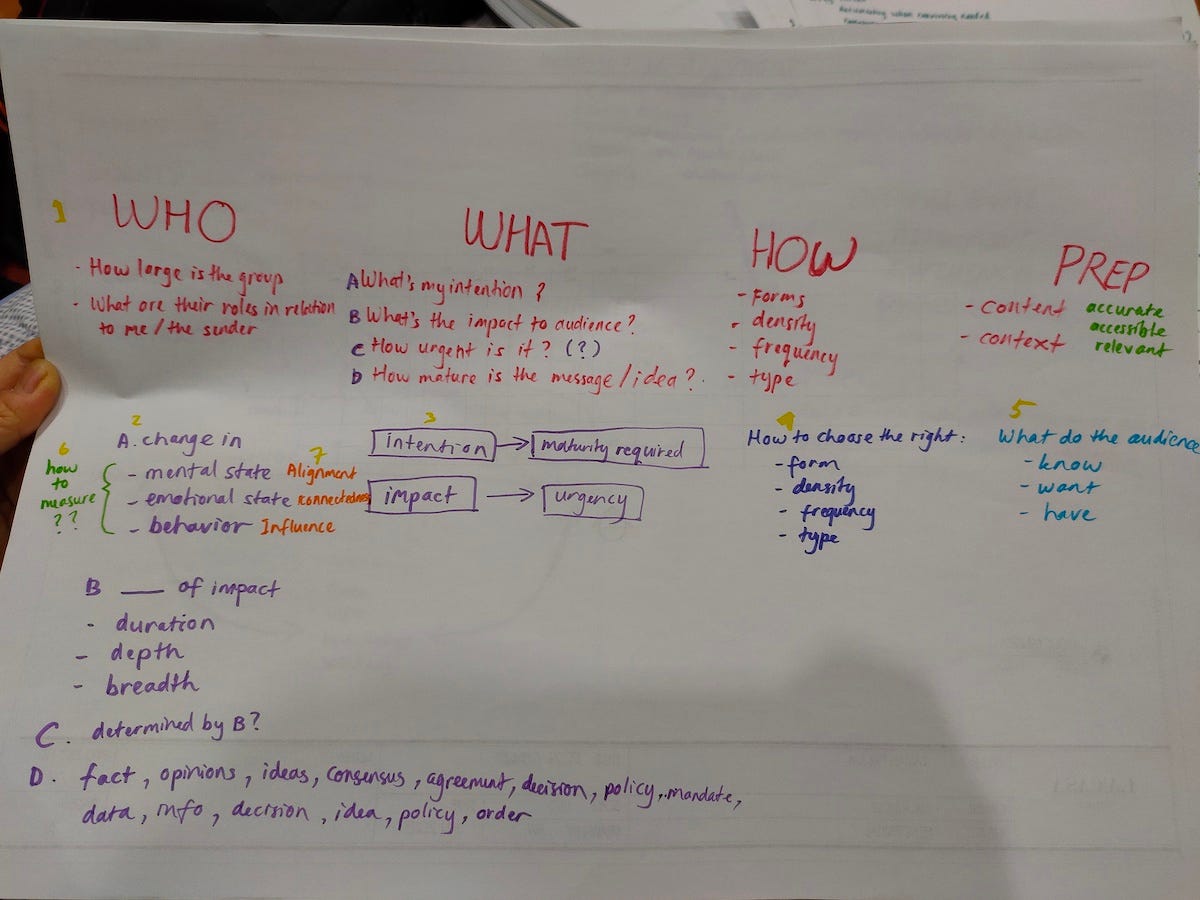 1
WHO
- How large is the group
- What are their roles in relation
to me/the sender
WHAT
A What's my intention?
B What's the impact to audience?
C How urgent is it? (?)
D How mature is the message/idea?
HOW
- Forms
- density
- frequency
- type
PREP
- content accurate
accessible
- context relevant
2
A. change in
6
how
to
measure
??
7
- mental state Alignment
- emotional state connectedness
- behavior Influence
3
intention → maturity required
impact → urgency
4
How to choose the right:
- form
- density
- frequency
- type
5
What do the audience
- know
- want
- have
B ___ of impact
- duration
- depth
- breadth
C. determined by B?
D. fact, opinions, ideas, consensus, agreement, decision, policy, mandate,
data, info, decision, idea, policy, order